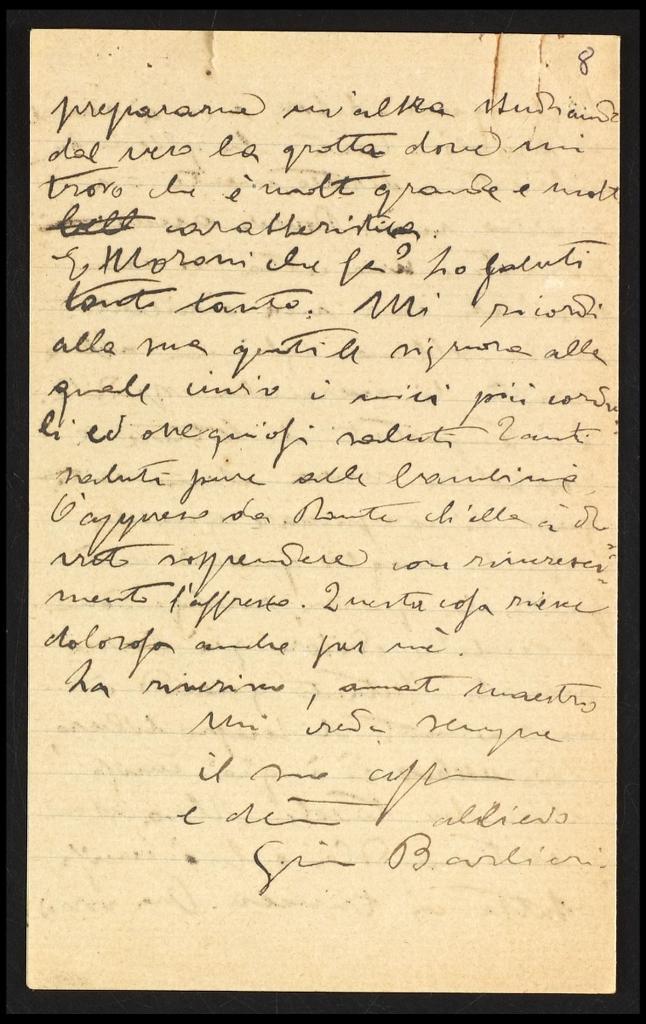 8
prepararne un'altra studiando
dal vero la grotta dove mi
trovo che è molto grande e molto
caratteristica.
E Moroni che fa? Lo saluti
tanto tanto. Mi ricordi
alla sua gentile signora alla
quale invio i miei più cordia-
li ed ossequiosi saluti. Tanti
saluti pure alle bambine.
O appreso da Dante ch'ella à do-
vuto sospendere con rincresci-
mento l'affresco. Questa cosa riesce
dolorosa anche per me.
La riverisco, amato maestro
mi creda sempre
il suo aff
e dev allievo
Gino Barbieri.